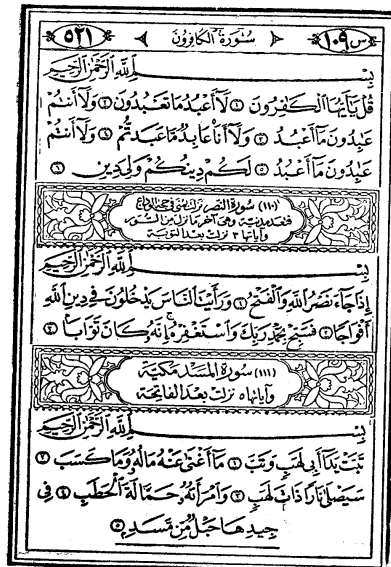 س ١٠٩ سُورَةُ الكَافِرُونَ ٥٢١
بِسْمِ اللَّهِ الرَّحْمَٰنِ الرَّحِيمِ
قُلْ يَا أَيُّهَا الْكَافِرُونَ ١ لَا أَعْبُدُ مَا تَعْبُدُونَ ٢ وَلَا أَنتُمْ
عَابِدُونَ مَا أَعْبُدُ ٣ وَلَا أَنَا عَابِدٌ مَّا عَبَدتُّمْ ٤ وَلَا أَنتُمْ
عَابِدُونَ مَا أَعْبُدُ ٥ لَكُمْ دِينُكُمْ وَلِيَ دِينِ ٦
(١١٠) سُورَةُ النَّصْر نزلت بمنى في حجة الوداع
فتعد مدنية وهي آخر ما نزل من السور
وآياتها ٣ نزلت بعد التوبة
بِسْمِ اللَّهِ الرَّحْمَٰنِ الرَّحِيمِ
إِذَا جَاءَ نَصْرُ اللَّهِ وَالْفَتْحُ ١ وَرَأَيْتَ النَّاسَ يَدْخُلُونَ فِي دِينِ اللَّهِ
أَفْوَاجًا ٢ فَسَبِّحْ بِحَمْدِ رَبِّكَ وَاسْتَغْفِرْهُ إِنَّهُ كَانَ تَوَّابًا ٣
(١١١) سُورَةُ المَسَد مَكيّة
وآياتها ٥ نزلت بعد الفاتحة
بِسْمِ اللَّهِ الرَّحْمَٰنِ الرَّحِيمِ
تَبَّتْ يَدَا أَبِي لَهَبٍ وَتَبَّ ١ مَا أَغْنَىٰ عَنْهُ مَالُهُ وَمَا كَسَبَ ٢
سَيَصْلَىٰ نَارًا ذَاتَ لَهَبٍ ٣ وَامْرَأَتُهُ حَمَّالَةَ الْحَطَبِ ٤ فِي
جِيدِهَا حَبْلٌ مِّن مَّسَدٍ ٥